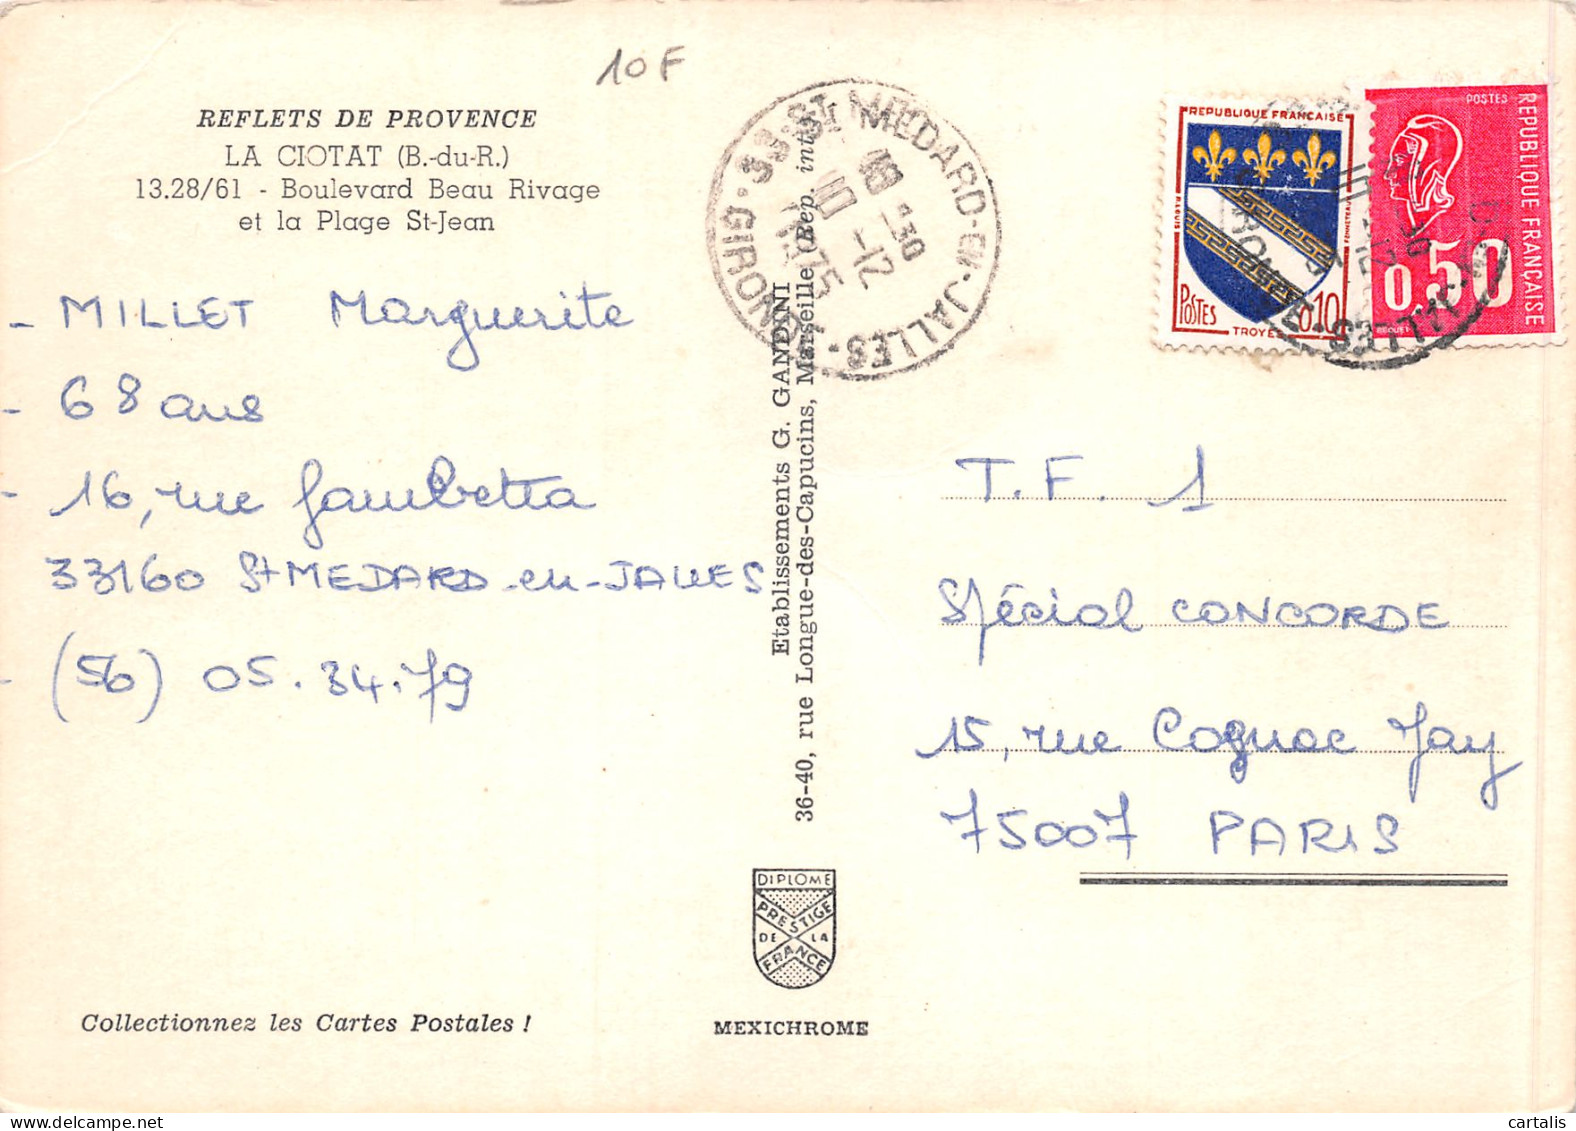 10F
REFLETS DE PROVENCE
LA CIOTAT (B.-du-R.)
13.28/61 - Boulevard Beau Rivage
et la Plage St-Jean
- MILLET Marguerite
- 68 ans
- 16, rue Gambetta
33160 St MEDARD-en-JALLES
- (56) 05.34.79
Collectionnez les Cartes Postales !
Etablissements G. GANDINI
36-40, rue Longue-des-Capucins, Marseille (Rep. int.)
DIPLOME
PRESTIGE
DE LA
FRANCE
MEXICHROME
33 ST MEDARD-EN-JALLES
GIRONDE
18 H 30
10-12
1975
REPUBLIQUE FRANÇAISE
POSTES
0,10
TROYES
POSTES
REPUBLIQUE FRANÇAISE
0,50
BEQUET
T.F. 1
Spécial CONCORDE
15, rue Cognac Jay
75007 PARIS
cartalis
delcampe.net